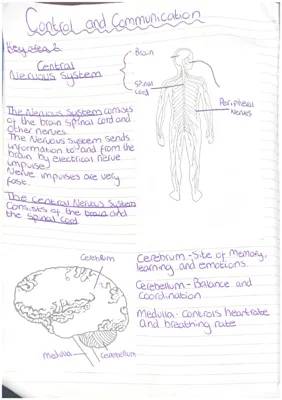 Control and Communication
Key area 2
Central
Nervous System
Brain
Spinal
cord
Peripheral
nerves
The Nervous System consists
of the brain spinal cord and
other nerves.
The Nervous System sends
information to and from the
brain by electrical nerve
impulse
Nerve impulses are very
fast.
The Central Nervous System
Consists of the brain and
the spinal cord
Cerebrum
Medulla
Cerebellum
Cerebrum - Site of memory,
learning and emotions.
Cerebellum - Balance and
Coordination
Medulla - controls heart rate
and breathing rate